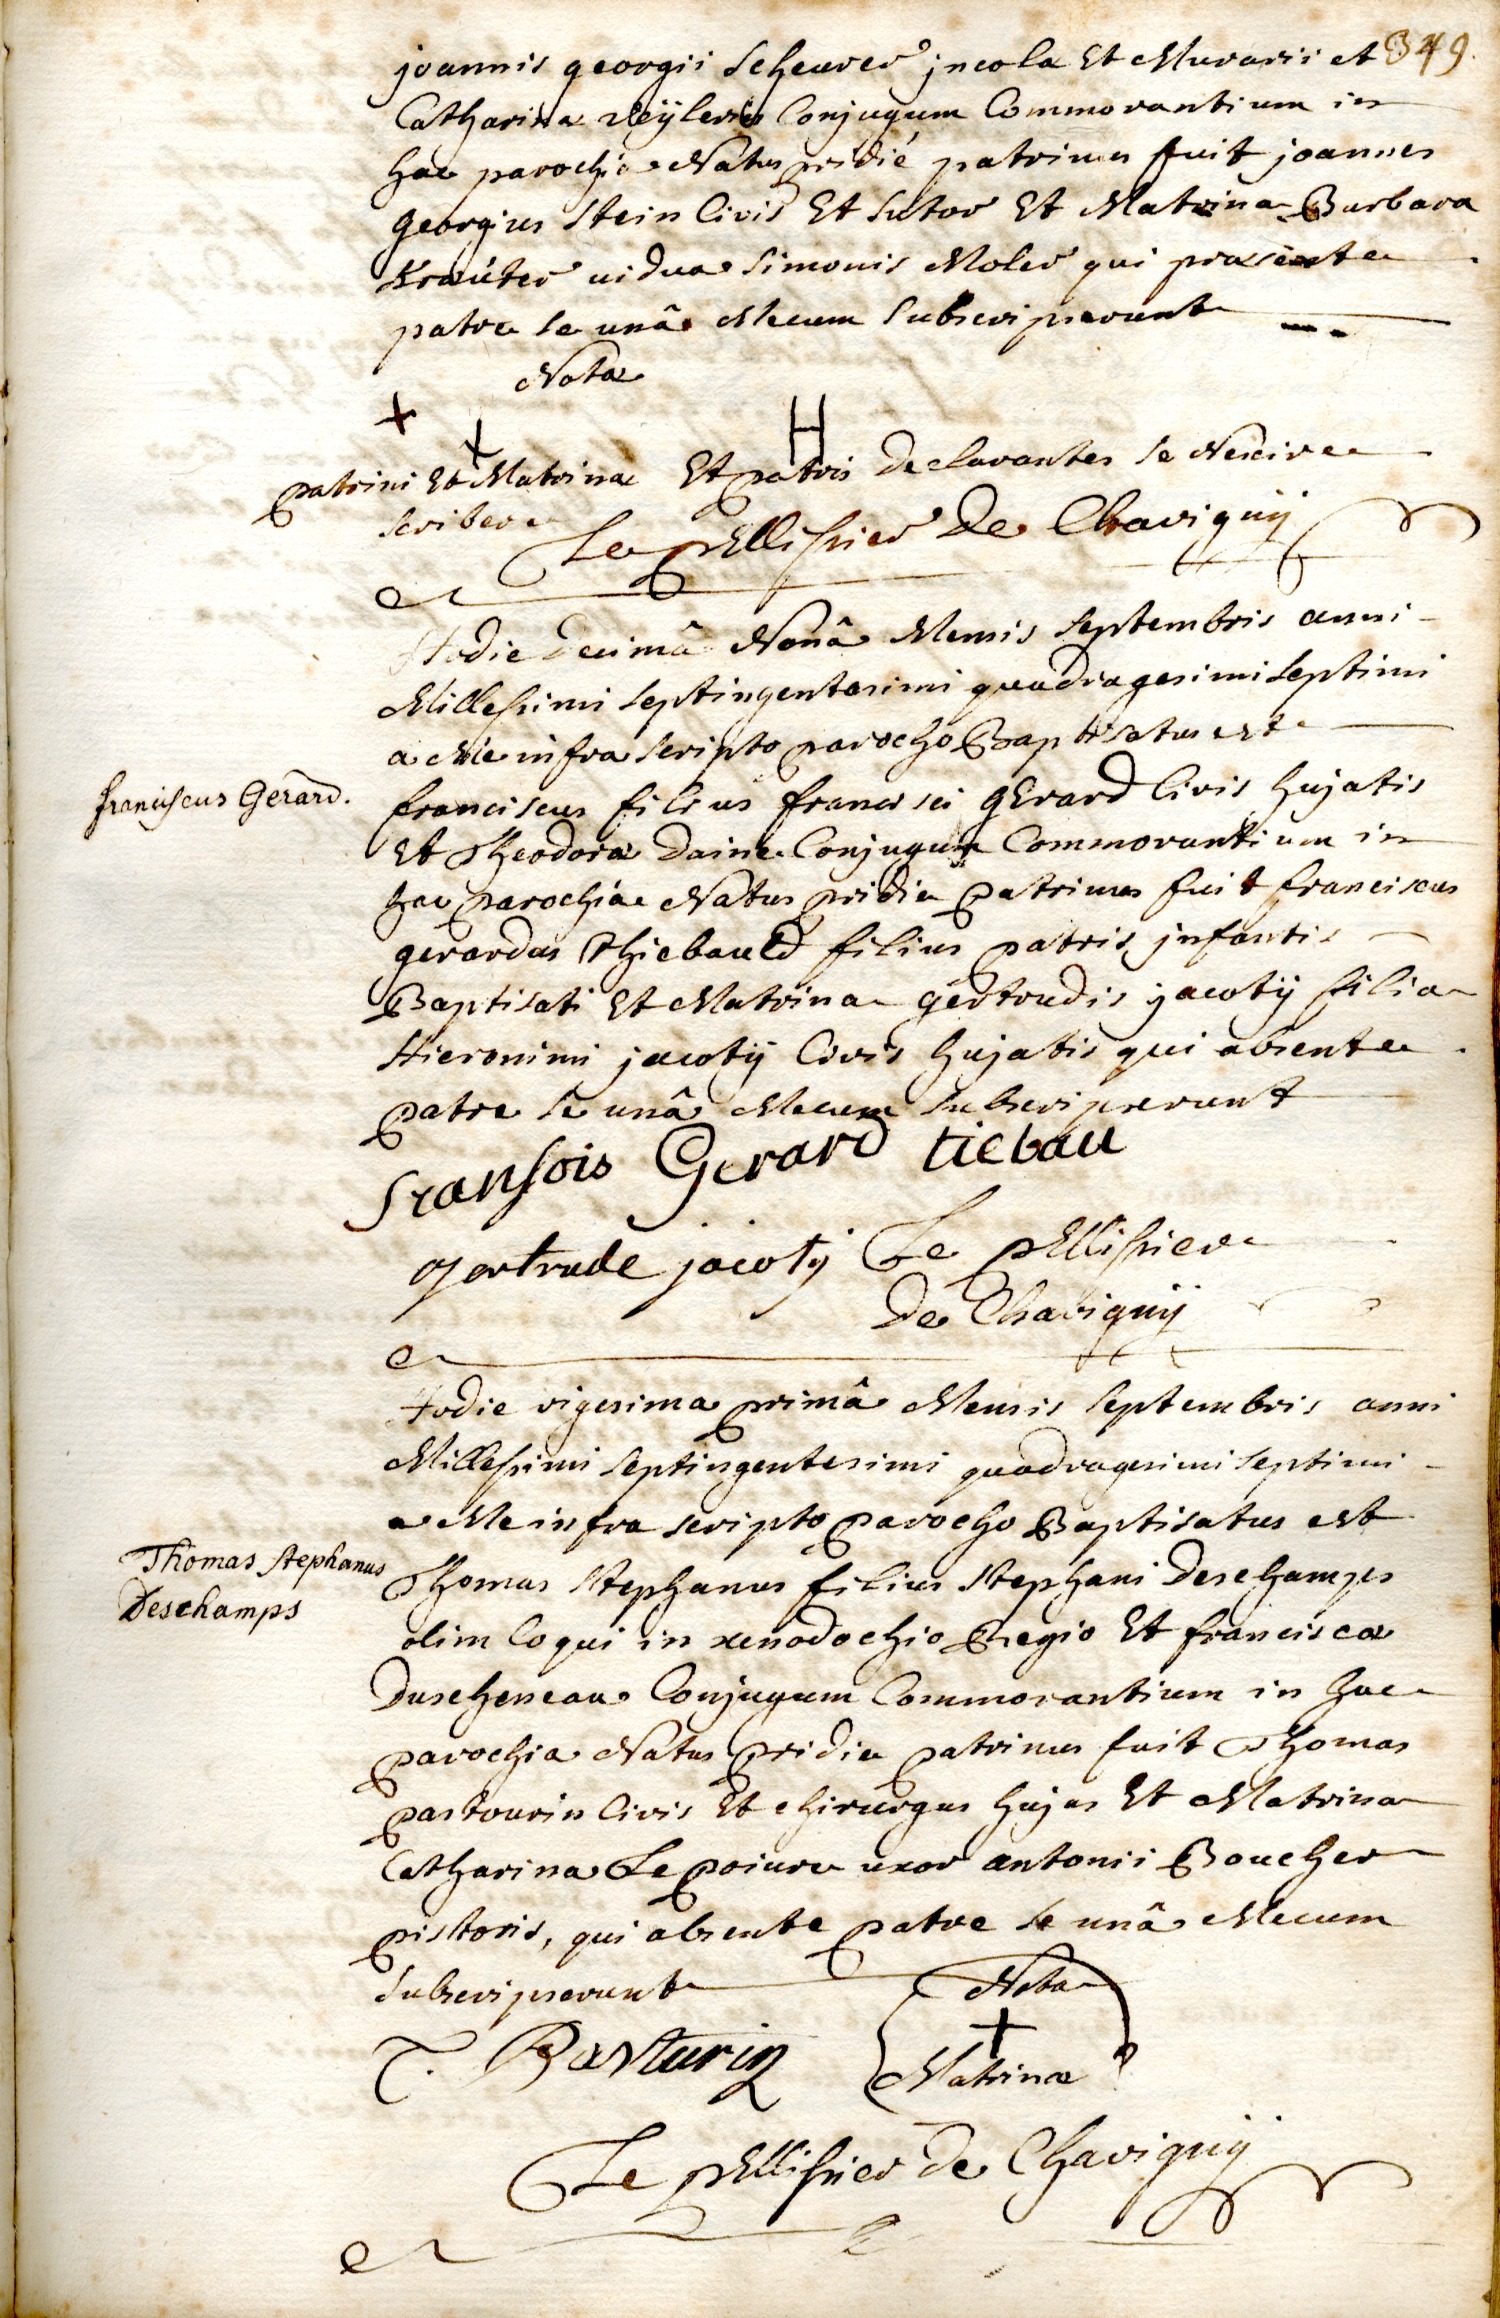 349.
joannis georgii Scheurer jncola Et Murarii et
Catharina Conjugum Commorantium in
hac parochia Natus pridie patrinus fuit joannes
georgius Stein Civis Et Sutor Et Matrina Barbara
Kraüter vidua Simonis Moler qui præsente
patre se unâ Mecum Subscripserunt
Nota
+ + H
patrini Et Matrinæ Et patris Declarantes se Nescire
scribere
Le pEllissier De Chavignÿ
Hodie Decimâ Nonâ Mensis Septembris anni
Millesimi Septingentesimi quadragesimi Septimi
a Me infra Scripto parocho Baptisatus est
franciscus Gerard.
franciscus filius francisci gErard Civis hujatis
Et Theodoræ Daine Conjugum Commorantium in
hac parochia Natus pridie patrinus fuit franciscus
gerardus Thiebauld filius patris jnfantis
Baptisati Et Matrina gertrudis jacotÿ filia
Hieronimi jacotÿ Civis hujatis qui absente
patre se unâ Mecum Subscripserunt
fransois Gerard tiebau
gertrude jacotÿ Le pEllissier
De Chavignÿ
Hodie vigesima primâ Mensis Septembris anni
Millesimi Septingentesimi quadragesimi Septimi
a Me infra scripto parocho Baptisatus est
Thomas Stephanus
Deschamps
Thomas Stephanus filius Stephani Deschamps
olim Coqui in xenodochio Regio Et franciscæ
Duscheneau Conjugum Commorantium in hac
parochia Natus pridie patrinus fuit Thomas
pastourin Civis Et chirurgus hujas Et Matrina
Catharina Le poivre uxor antonii Boucher
pistoris, qui absente patre se unâ Mecum
Subscripserunt
Nota
+
Matrinæ
T. Pasturin
Le pEllissier De Chavignÿ